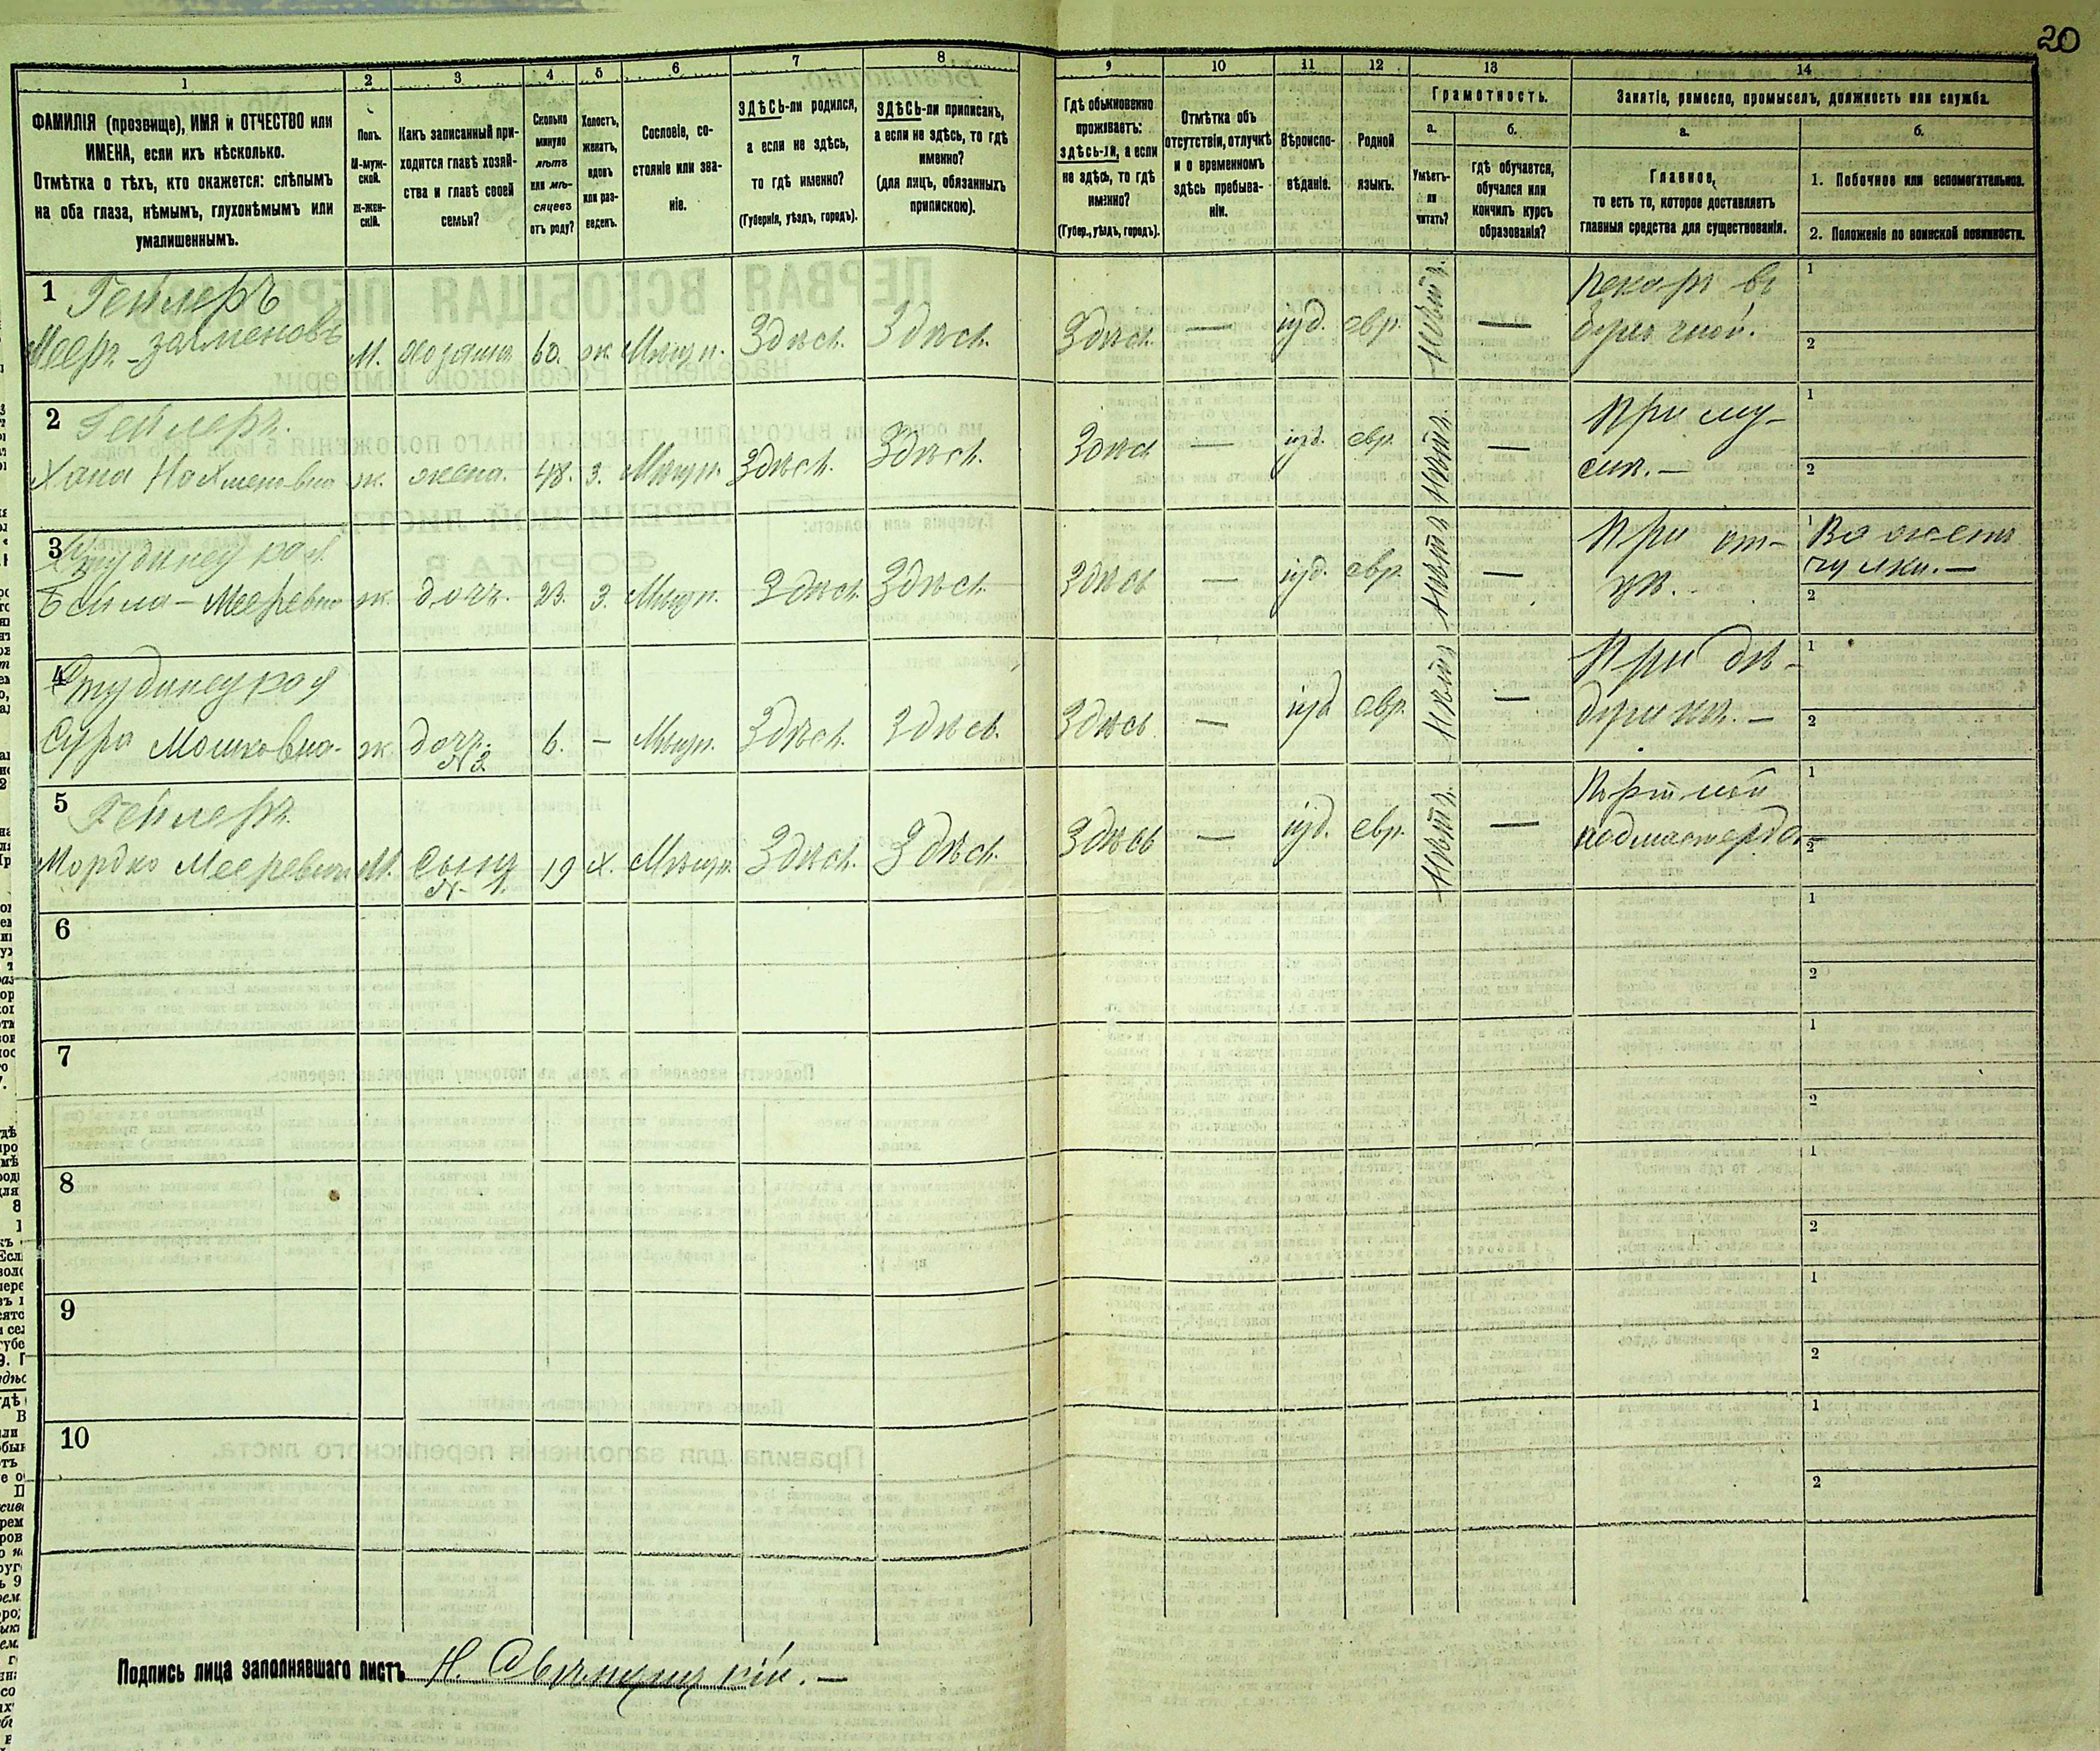 20
1 2 3 4 5 6 7 8 9 10 11 12 13 14
ФАМИЛІЯ (прозвище), ИМЯ и ОТЧЕСТВО или
ИМЕНА, если ихъ нѣсколько.
Отмѣтка о тѣхъ, кто окажется: слѣпымъ
на оба глаза, нѣмымъ, глухонѣмымъ или
умалишеннымъ.
Полъ.
М-муж-
ской.
Ж-жен-
скій.
Какъ записанный при-
ходится главѣ хозяй-
ства и главѣ своей
семьи?
Сколько
минуло
лѣтъ
или мѣ-
сяцевъ
отъ роду?
Холостъ,
женатъ,
вдовъ
или раз-
веденъ.
Сословіе, со-
стояніе или зва-
ніе.
ЗДѢСЬ-ли родился,
а если не здѣсь,
то гдѣ именно?
(Губернія, уѣздъ, городъ).
ЗДѢСЬ-ли приписанъ,
а если не здѣсь, то гдѣ
именно?
(для лицъ, обязанныхъ
припискою).
Гдѣ обыкновенно
проживаетъ:
ЗДѢСЬ-ли, а если
не здѣсь, то гдѣ
именно?
(Губер., уѣздъ, городъ).
Отмѣтка объ
отсутствіи, отлучкѣ
и о временномъ
здѣсь пребыва-
ніи.
Вѣроиспо-
вѣданіе.
Родной
языкъ.
Грамотность.
а.
Умѣетъ-
ли
читать?
б.
Гдѣ обучается,
обучался или
кончилъ курсъ
образованія?
Занятіе, ремесло, промыселъ, должность или служба.
а.
Главное,
то есть то, которое доставляетъ
главныя средства для существованія.
б.
1. Побочное или вспомогательное.
2. Положеніе по воинской повинности.
1 Гейлеръ
Мееръ-Залменовъ М. хозяинъ 60. ж. Мѣщ. Здѣсь. Здѣсь. Здѣсь. — іуд. евр. —
Пекарь въ
1
2
2 Гейлеръ.
Хана Нахменовна ж. жена. 48. З. Мѣщ. Здѣсь. Здѣсь. Здѣсь — іуд. евр. Нѣтъ —
При му-
жѣ. —
1
2
3
Бейла-Мееревна ж. дочь. 23. З. Мѣщ. Здѣсь. Здѣсь. Здѣсь — іуд. евр. Нѣтъ —
При от-
цѣ.
1 Вяжетъ
чулки. —
2
4
Сура Мошковна. ж. дочь 6. — Мѣщ. Здѣсь. Здѣсь. Здѣсь. — іуд евр. Нѣтъ —
При дѣ-
1
2
5 Гейлеръ.
Мордко Мееревичъ М. Сынъ 19 Х. Мѣщ. Здѣсь. Здѣсь. Здѣсь — іуд. евр. Нѣтъ. —
Портной
1
2
6 1
2
7 1
2
8 1
2
9 1
2
10 1
2
Подпись лица заполнявшаго листъ